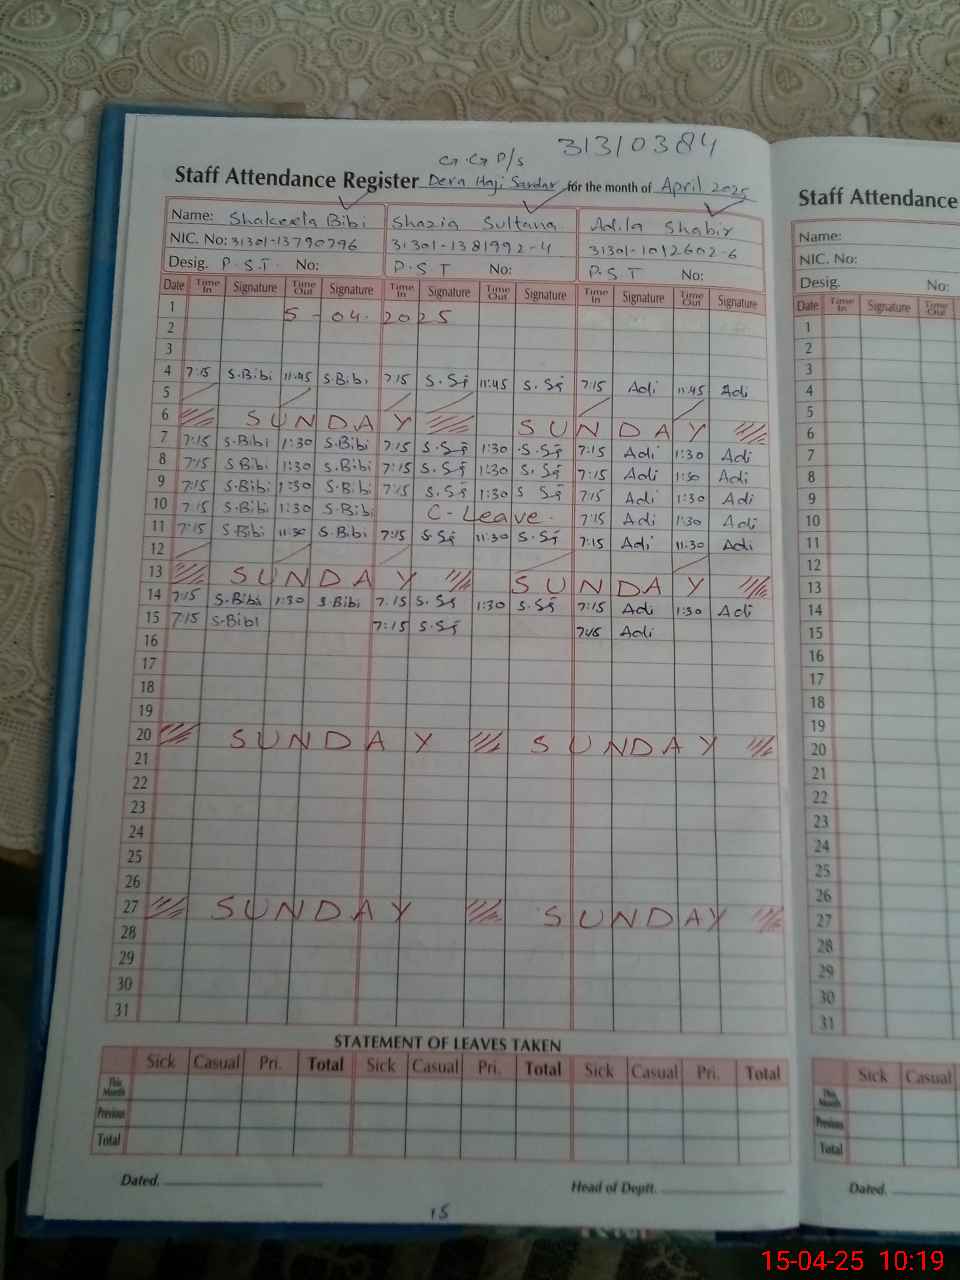 31310384
G. G P/s
Staff Attendance Register Dera Haji Sardar for the month of April 2025
Name: Shakeela Bibi Shazia Sultana Adila Shabir
NIC. No: 31301-13790796 31301-1381992-4 31301-1012602-6
Desig. P.S.T. No: P.S.T No: P.S.T No:
Date Time In Signature Time Out Signature Time In Signature Time Out Signature Time In Signature Time Out Signature
1 5-04.2025
2
3
4 7:15 S.Bibi 11:45 S.Bibi 7:15 S.Sj 11:45 S.Sj 7:15 Adi 11:45 Adi
5
6 SUNDAY SUNDAY
7 7:15 S.Bibi 1:30 S.Bibi 7:15 S.Sj 1:30 S.Sj 7:15 Adi 1:30 Adi
8 7:15 S Bibi 1:30 S.Bibi 7:15 S.Sj 1:30 S.Sj 7:15 Adi 1:30 Adi
9 7:15 S.Bibi 1:30 S.Bibi 7:15 S.Sj 1:30 S Sj 7:15 Adi 1:30 Adi
10 7:15 S.Bibi 1:30 S.Bibi C-Leave. 7:15 Adi 1:30 Adi
11 7:15 S.Bibi 11:30 S.Bibi 7:15 S.Sj 11:30 S.Sj 7:15 Adi 11:30 Adi
12
13 SUNDAY SUNDAY
14 7:15 S.Bibi 1:30 S.Bibi 7.15 S.Sj 1:30 S.Sj 7:15 Adi 1:30 Adi
15 7:15 S.Bibi 7:15 S.Sj 7:15 Adi
16
17
18
19
20 SUNDAY SUNDAY
21
22
23
24
25
26
27 SUNDAY SUNDAY
28
29
30
31
STATEMENT OF LEAVES TAKEN
Sick Casual Pri. Total Sick Casual Pri. Total Sick Casual Pri. Total
This Month
Previous
Total
Dated. Head of Deptt.
15
Staff Attendance
Name:
NIC. No:
Desig. No:
Date Time In Signature Time Out
1
2
3
4
5
6
7
8
9
10
11
12
13
14
15
16
17
18
19
20
21
22
23
24
25
26
27
28
29
30
31
Sick Casual
This Month
Previous
Total
Dated.
15-04-25 10:19